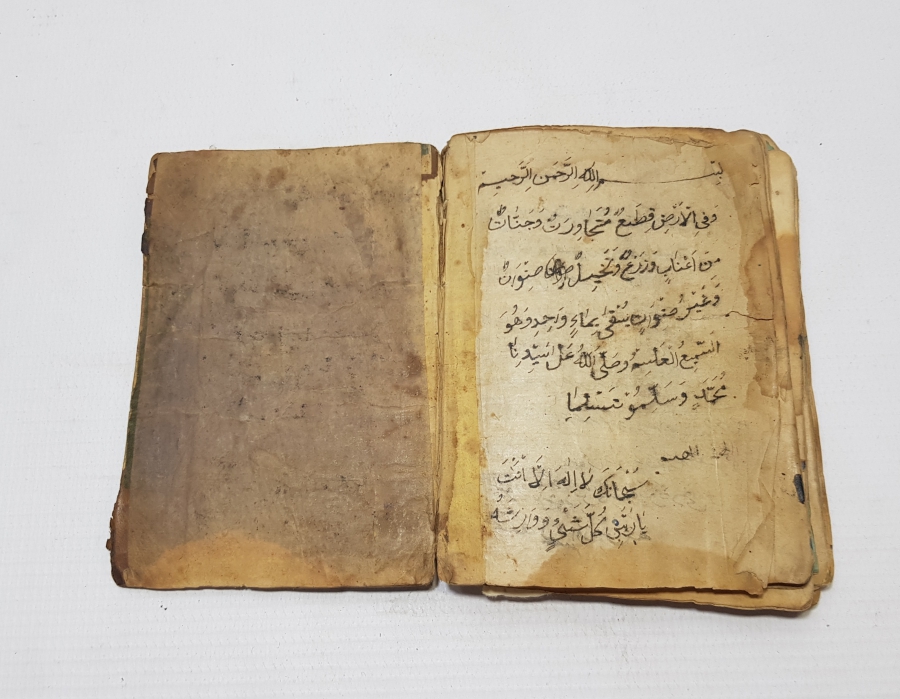 بسم الله الرحمن الرحيم
وَفِي الْاَرْضِ قِطَعٌ مُتَجَاوِرَتٌ وَجَنَّاتٌ
مِنْ اَعْنَابٍ وَزَرْعٌ وَنَخِيلٌ صِنْوَانٌ
وَغَيْرُ صِنْوَانٍ يُسْقٰى بِمَاءٍ وَاحِدٍ وَهُوَ
السَّمِيعُ الْعَلِيمُ وَصَلَّى اللّٰهُ عَلٰى سَيِّدِنَا
مُحَمَّدٍ وَسَلِّمُو تَسْلِيمًا
سُبْحَانَكَ لَا اِلٰهَ اِلَّا اَنْتَ
يَا رَبَّ كُلِّ شَئْيٍ وَوَارِثَهُ